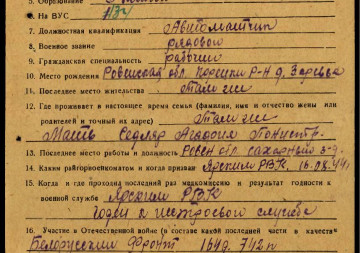 5. Образование
6. На ВУС 1134
7. Должностная квалификация Автоматчик
8. Военное звание рядовой
9. Гражданская специальность рабочий
10. Место рождения Ровенская обл. Р-Н д.
11. Последнее место жительства Там же
12. Где проживает в настоящее время семья (фамилия, имя и отчество жены или
родителей и точный их адрес) Там же
Мать Седляр
13. Последнее место работы и должность Ровен обл. сахарный з-д
14. Каким райгорвоенкоматом и когда призван РВК 16.08.44
15. Когда и где проходил последний раз медкомиссию и результат годности к
военной службе РВК
годен к нестроевой службе
16. Участие в Отечественной войне (в составе какой последней части и в качестве
Белорусский Фронт 164д. 742 п